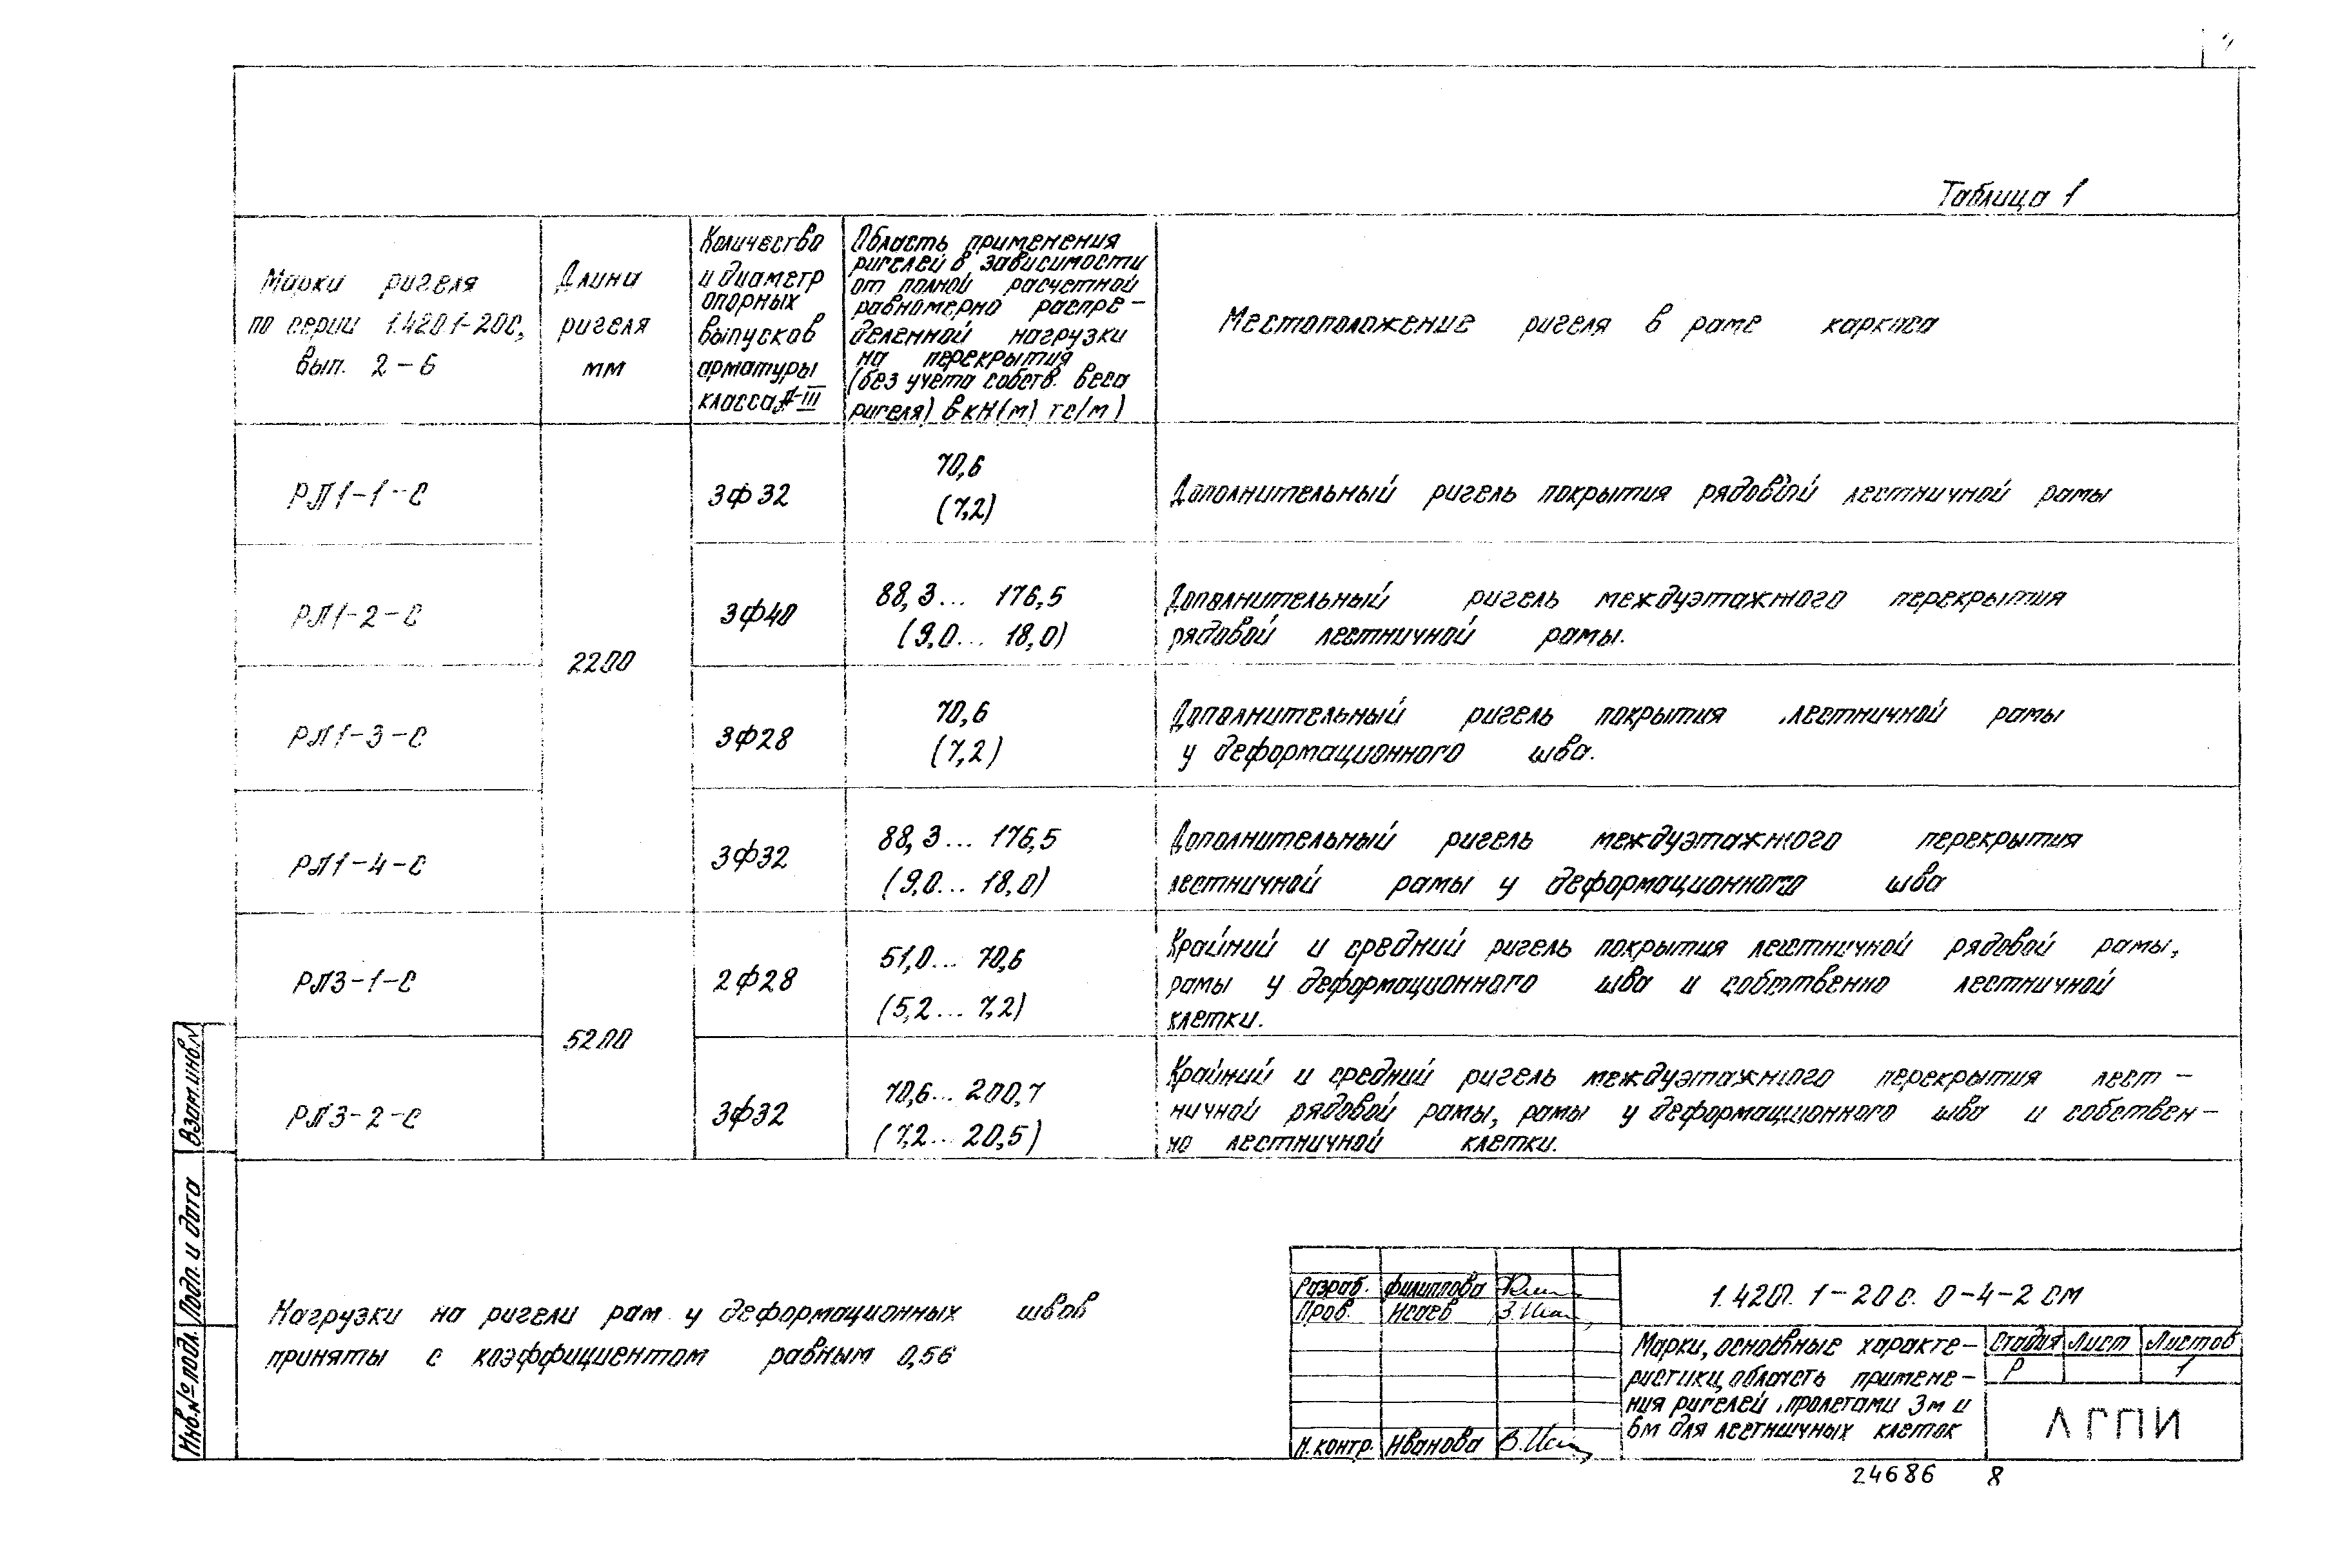 Таблица 1
Марки ригеля
по серии 1.420.1-20С,
вып. 2-6
Длина
ригеля
мм
Количество
и диаметр
опорных
выпусков
арматуры
класса А-III
Область применения
ригелей в зависимости
от полной расчетной
равномерно распре-
деленной нагрузки
на перекрытия
(без учета собств. веса
ригеля) в кН(м) тс/м)
Местоположение ригеля в раме каркаса
РЛ1-1-С
2200
3ф32
70,6
(7,2)
Дополнительный ригель покрытия рядовой лестничной рамы
РЛ1-2-С
3ф40
88,3... 176,5
(9,0... 18,0)
Дополнительный ригель междуэтажного перекрытия
рядовой лестничной рамы.
РЛ1-3-С
3ф28
70,6
(7,2)
Дополнительный ригель покрытия лестничной рамы
у деформационного шва.
РЛ1-4-С
3ф32
88,3... 176,5
(9,0... 18,0)
Дополнительный ригель междуэтажного перекрытия
лестничной рамы у деформационного шва
РЛ3-1-С
5200
2ф28
51,0... 70,6
(5,2... 7,2)
Крайний и средний ригель покрытия лестничной рядовой рамы,
рамы у деформационного шва и собственно лестничной
клетки.
РЛ3-2-С
3ф32
70,6... 200,7
(7,2... 20,5)
Крайний и средний ригель междуэтажного перекрытия лест-
ничной рядовой рамы, рамы у деформационного шва и собствен-
но лестничной клетки.
Нагрузки на ригели рам у деформационных швов
приняты с коэффициентом равным 0,56
Взам.инв.№
Подп. и дата
Инв.№ подл.
Разраб. Филиппова
Пров. Исаев
Н.контр. Иванова
1.420.1-20с. 0-4-2 СМ
Марки, основные характе-
ристики, область примене-
ния ригелей, пролетами 3м и
6м для лестничных клеток
Стадия Лист Листов
Р 1
ЛГПИ
24686 8